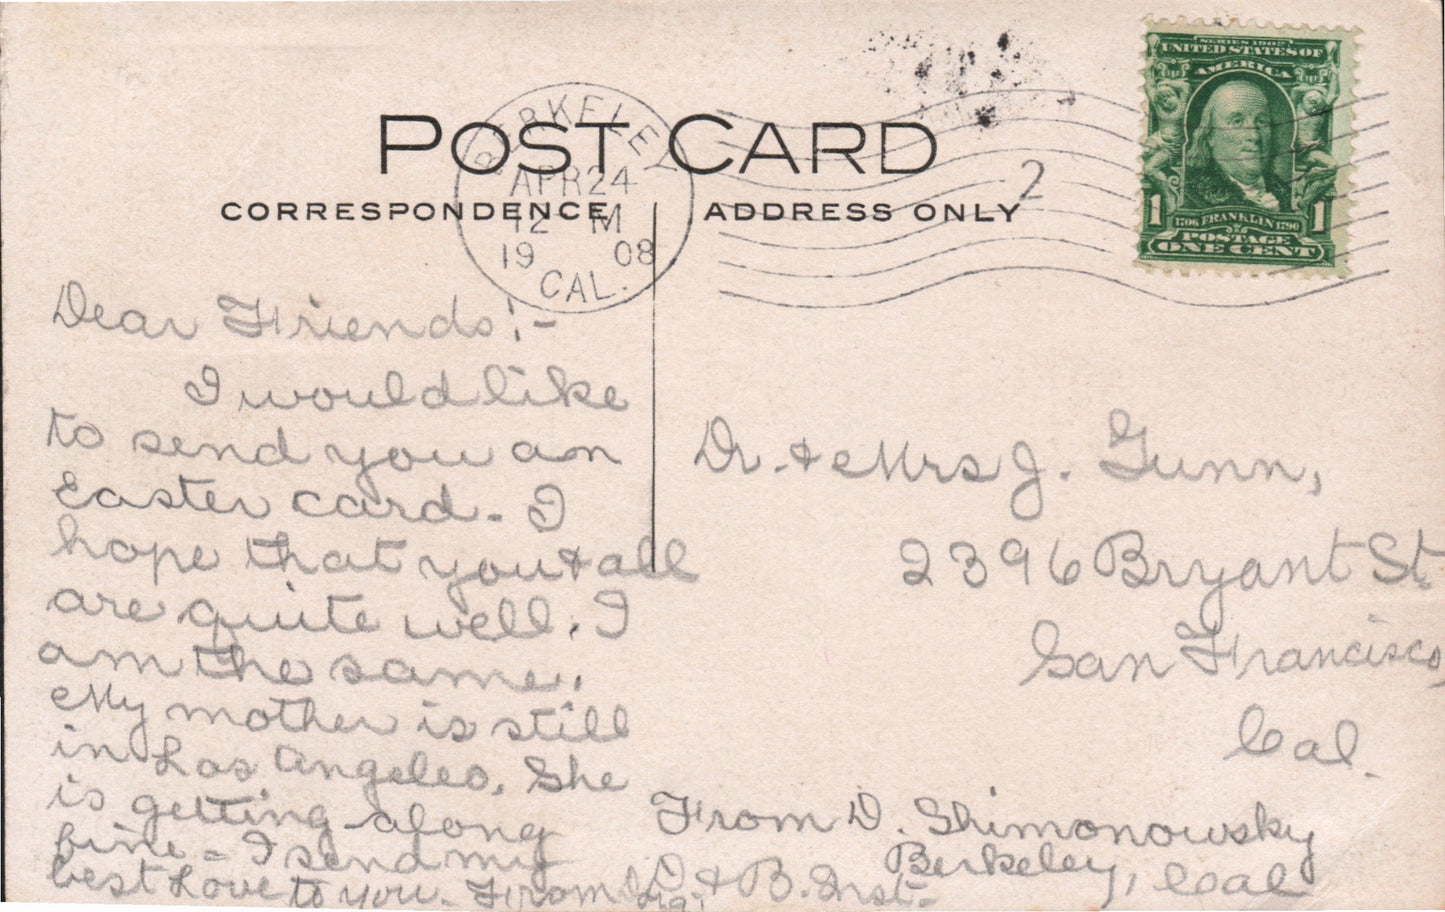 POST CARD
CORRESPONDENCE
ADDRESS ONLY
BERKELEY
APR 24
12 M
1908
CAL.
2
SERIES 1902
UNITED STATES OF
AMERICA
1
1706 FRANKLIN 1790
1
POSTAGE
ONE CENT
Dear Friends:-
I would like
to send you an
Easter card. I
hope that you & all
are quite well. I
am the same.
My mother is still
in Los Angeles. She
is getting along
fine - I send my
best Love to you. From
Dr. & Mrs J. Gunn,
2396 Bryant St
San Francisco,
Cal.
From D. Shimonowsky
Berkeley, Cal
D. & B. Inst.